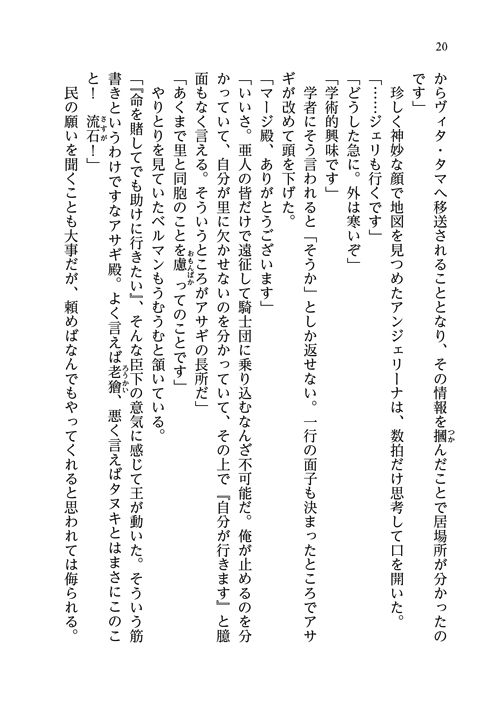 20
からヴィタ・タマへ移送されることとなり、その情報を摑んだことで居場所が分かったの
です」
珍しく神妙な顔で地図を見つめたアンジェリーナは、数拍だけ思考して口を開いた。
「……ジェリも行くです」
「どうした急に。外は寒いぞ」
「学術的興味です」
学者にそう言われると「そうか」としか返せない。一行の面子も決まったところでアサ
ギが改めて頭を下げた。
「マージ殿、ありがとうございます」
「いいさ。亜人の皆だけで遠征して騎士団に乗り込むなんざ不可能だ。俺が止めるのを分
かっていて、自分が里に欠かせないのを分かっていて、その上で『自分が行きます』と臆
面もなく言える。そういうところがアサギの長所だ」
「あくまで里と同胞のことを慮ってのことです」
やりとりを見ていたベルマンもうむうむと頷いている。
「『命を賭してでも助けに行きたい』、そんな臣下の意気に感じて王が動いた。そういう筋
書きというわけですなアサギ殿。よく言えば老獪、悪く言えばタヌキとはまさにこのこ
と！　流石！」
民の願いを聞くことも大事だが、頼めばなんでもやってくれると思われては侮られる。
つか
おもんぱか
ろうかい
さすが